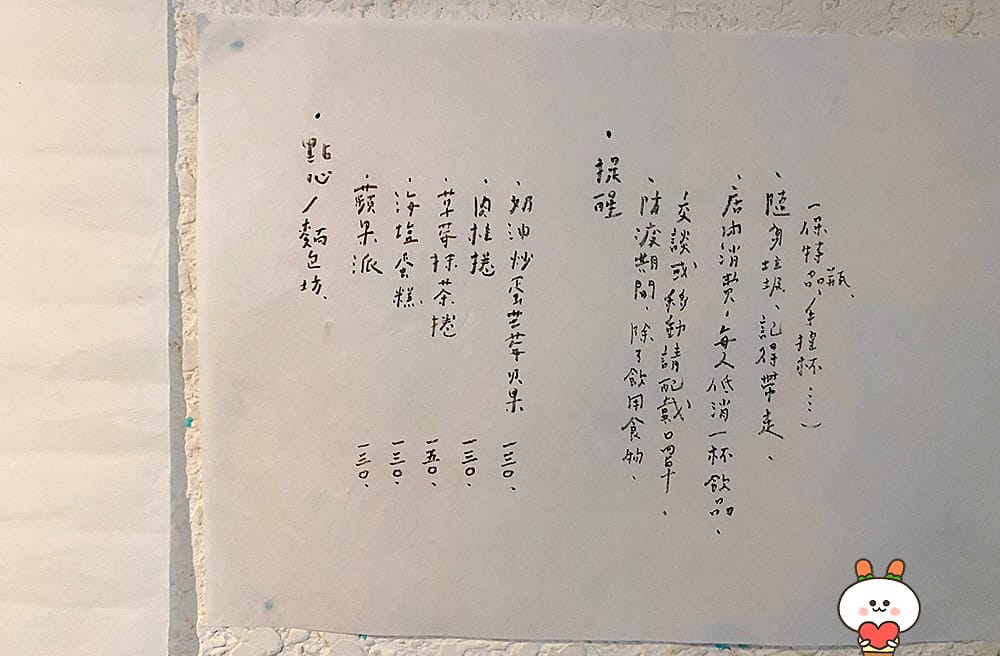 ・點心／麵包坊、
・蘋果派 一三〇、
・海塩蛋糕 一三〇、
・草莓抹茶捲 一五〇、
・肉桂捲 一三〇、
・奶油炒蛋 貝果 一三〇、
・提醒
・防疫期間、除了飲用食物、
交談或移動請配戴口罩、
・店內消費，每人低消一杯飲品、
・隨身垃圾、記得帶走、
（保特品瓶、手搖杯……）